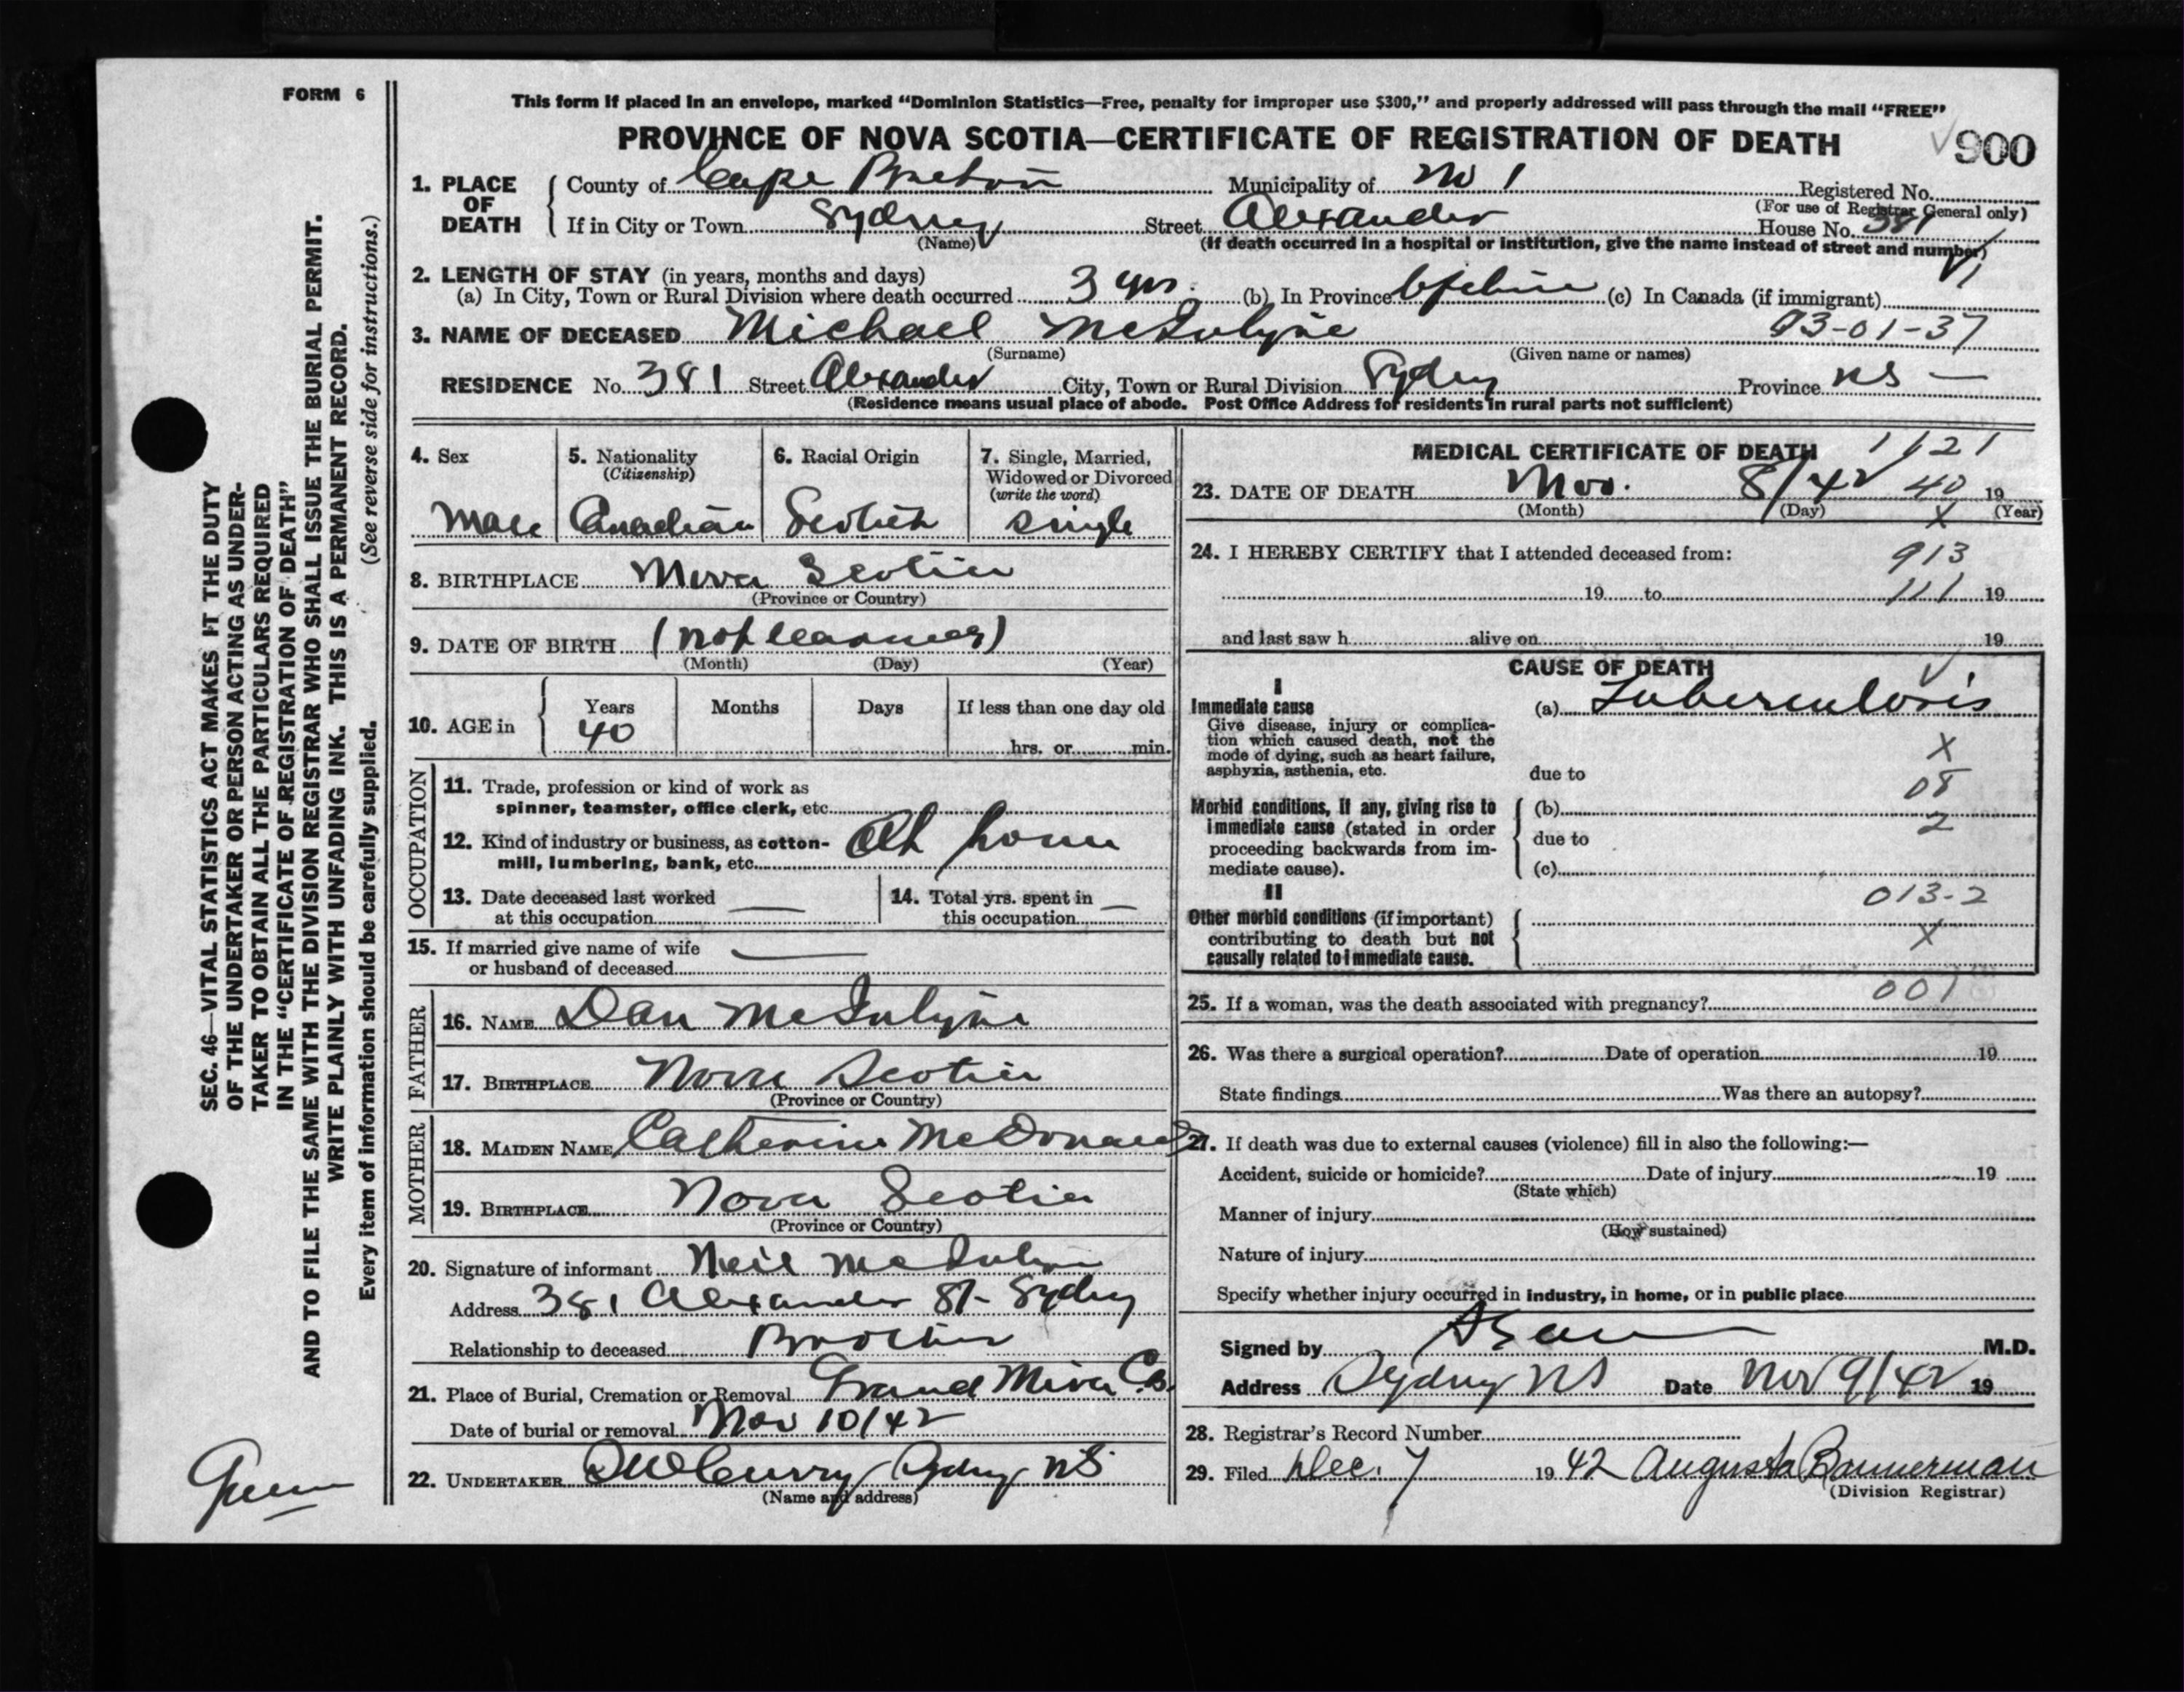 FORM 6
This form if placed in an envelope, marked “Dominion Statistics—Free, penalty for improper use $300,” and properly addressed will pass through the mail “FREE”
PROVINCE OF NOVA SCOTIA—CERTIFICATE OF REGISTRATION OF DEATH
900
1. PLACE OF DEATH
County of Cape Breton Municipality of No 1 Registered No.
(For use of Registrar General only)
If in City or Town Sydney Street Alexander House No. 381
(Name) (If death occurred in a hospital or institution, give the name instead of street and number)
2. LENGTH OF STAY (in years, months and days)
(a) In City, Town or Rural Division where death occurred 3 yrs. (b) In Province Lifetime (c) In Canada (if immigrant)
3. NAME OF DECEASED Michael McIntyre 93-01-37
(Surname) (Given name or names)
RESIDENCE No. 381 Street Alexander City, Town or Rural Division Sydney Province NS —
(Residence means usual place of abode. Post Office Address for residents in rural parts not sufficient)
4. Sex
Male
5. Nationality
(Citizenship)
Canadian
6. Racial Origin
Scotch
7. Single, Married, Widowed or Divorced
(write the word)
Single
8. BIRTHPLACE Nova Scotia
(Province or Country)
9. DATE OF BIRTH (not learned)
(Month) (Day) (Year)
10. AGE in
Years Months Days If less than one day old
40 hrs. or min.
OCCUPATION
11. Trade, profession or kind of work as
spinner, teamster, office clerk, etc.
12. Kind of industry or business, as cotton-
mill, lumbering, bank, etc. At home
13. Date deceased last worked
at this occupation —
14. Total yrs. spent in
this occupation —
15. If married give name of wife
or husband of deceased —
FATHER
16. NAME Dan McIntyre
17. BIRTHPLACE Nova Scotia
(Province or Country)
MOTHER
18. MAIDEN NAME Catherine McDonald
19. BIRTHPLACE Nova Scotia
(Province or Country)
20. Signature of informant Neil McIntyre
Address 381 Alexander St- Sydney
Relationship to deceased Brother
21. Place of Burial, Cremation or Removal Grand Mira C.B.
Date of burial or removal Nov 10/42
22. UNDERTAKER Curry Sydney NS
(Name and address)
MEDICAL CERTIFICATE OF DEATH
1121
23. DATE OF DEATH Nov. 8/42 40 19
(Month) (Day) (Year)
X
24. I HEREBY CERTIFY that I attended deceased from:
913
19 to 111 19
and last saw h alive on 19
CAUSE OF DEATH
I
Immediate cause
Give disease, injury or complica-
tion which caused death, not the
mode of dying, such as heart failure,
asphyxia, asthenia, etc.
(a) Tuberculosis
X
due to
08
Morbid conditions, if any, giving rise to
immediate cause (stated in order
proceeding backwards from im-
mediate cause).
(b)
2
due to
(c)
II
013-2
Other morbid conditions (if important)
contributing to death but not
causally related to immediate cause.
X
001
25. If a woman, was the death associated with pregnancy?
26. Was there a surgical operation? Date of operation 19
State findings Was there an autopsy?
27. If death was due to external causes (violence) fill in also the following:—
Accident, suicide or homicide? Date of injury 19
(State which)
Manner of injury
(How sustained)
Nature of injury
Specify whether injury occurred in industry, in home, or in public place
Signed by M.D.
Address Sydney NS Date Nov 9/42 19
28. Registrar's Record Number
29. Filed Dec. 7 1942 Augusta Bannerman
(Division Registrar)
SEC. 46—VITAL STATISTICS ACT MAKES IT THE DUTY
OF THE UNDERTAKER OR PERSON ACTING AS UNDER-
TAKER TO OBTAIN ALL THE PARTICULARS REQUIRED
IN THE “CERTIFICATE OF REGISTRATION OF DEATH”
AND TO FILE THE SAME WITH THE DIVISION REGISTRAR WHO SHALL ISSUE THE BURIAL PERMIT.
WRITE PLAINLY WITH UNFADING INK. THIS IS A PERMANENT RECORD.
Every item of information should be carefully supplied. (See reverse side for instructions.)